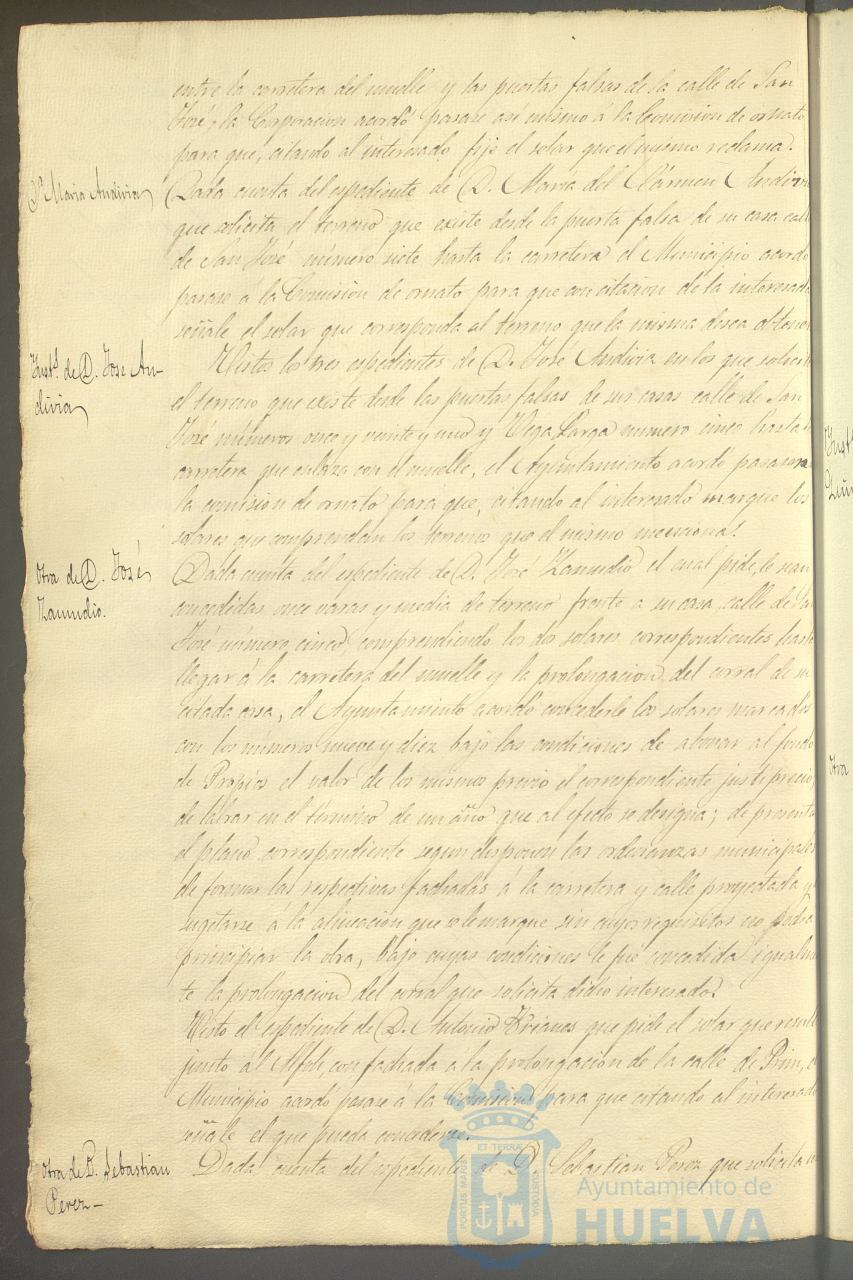 entre la carretera del muelle y las puertas falsas de la calle de San
José, la Corporacion acordó pasase asi mismo á la Comision de ornato
para que, citando al interesado fije el solar que el mismo reclama.
Dª Maria Andivia
Dada cuenta del espediente de D. Maria del Cármen Andivia
que solicita el terreno que existe desde la puerta falsa de su casa calle
de San José número siete hasta la carretera el Municipio acordó
pasase á la Comision de ornato para que con citacion de la interesada
señale el solar que corresponda al terreno que la misma desea obtener
Instª de D. Jose An-
divia
Vistos los tres espedientes de D. José Andivia en los que solicita
el terreno que existe desde las puertas falsas de sus casas calle de San
José números once y veinte y uno y Vega Larga numero cinco hasta la
carretera que enlaza con el muelle, el Ayuntamiento acordó pasasen a
la comision de ornato para que, citando al interesado marque los
solares que comprendan los terrenos que el mismo menciona.
Otra de D. José
Zamudio.
Dada cuenta del espediente de D. José Zamudio el cual pide, le sean
concedidas once varas y media de terreno frente a su casa, calle de San
José número cinco, comprendiendo los dos solares correspondientes hasta
llegar á la carretera del muelle y la prolongacion del corral de su
citada casa, el Ayuntamiento acordó concederle los solares marcados
con los números nueve y diez bajo las condiciones de abonar al fondo
de Propios el valor de los mismos previo el correspondiente justiprecio,
de labrar en el término de un año que al efecto se designa; de presentar
el plano correspondiente segun disponen las ordenanzas municipales
de formar las respectivas fachadas á la carretera y calle proyectada y
sugetarse a la alineacion que se le marque sin cuyos requisitos no podrá
principiar la obra, bajo cuyas condiciones le fué concedida igualmen
te la prolongacion del corral que solicita dicho interesado.
Visto el espediente de D. Antonio que pide el solar que resulta
junto al Alfolí, con fachada a la prolongacion de la calle de Prim, el
Municipio acordó pasase á la Comision para que citando al interesado
señale el que pueda concederse.
Otra de D. Sebastian
Perez-
Dada cuenta del espediente de D. Sebastian Perez que solicita
Ayuntamiento de
HUELVA
PORTUS MARIS
ET TERRÆ
CUSTODIA
Instª
Otra